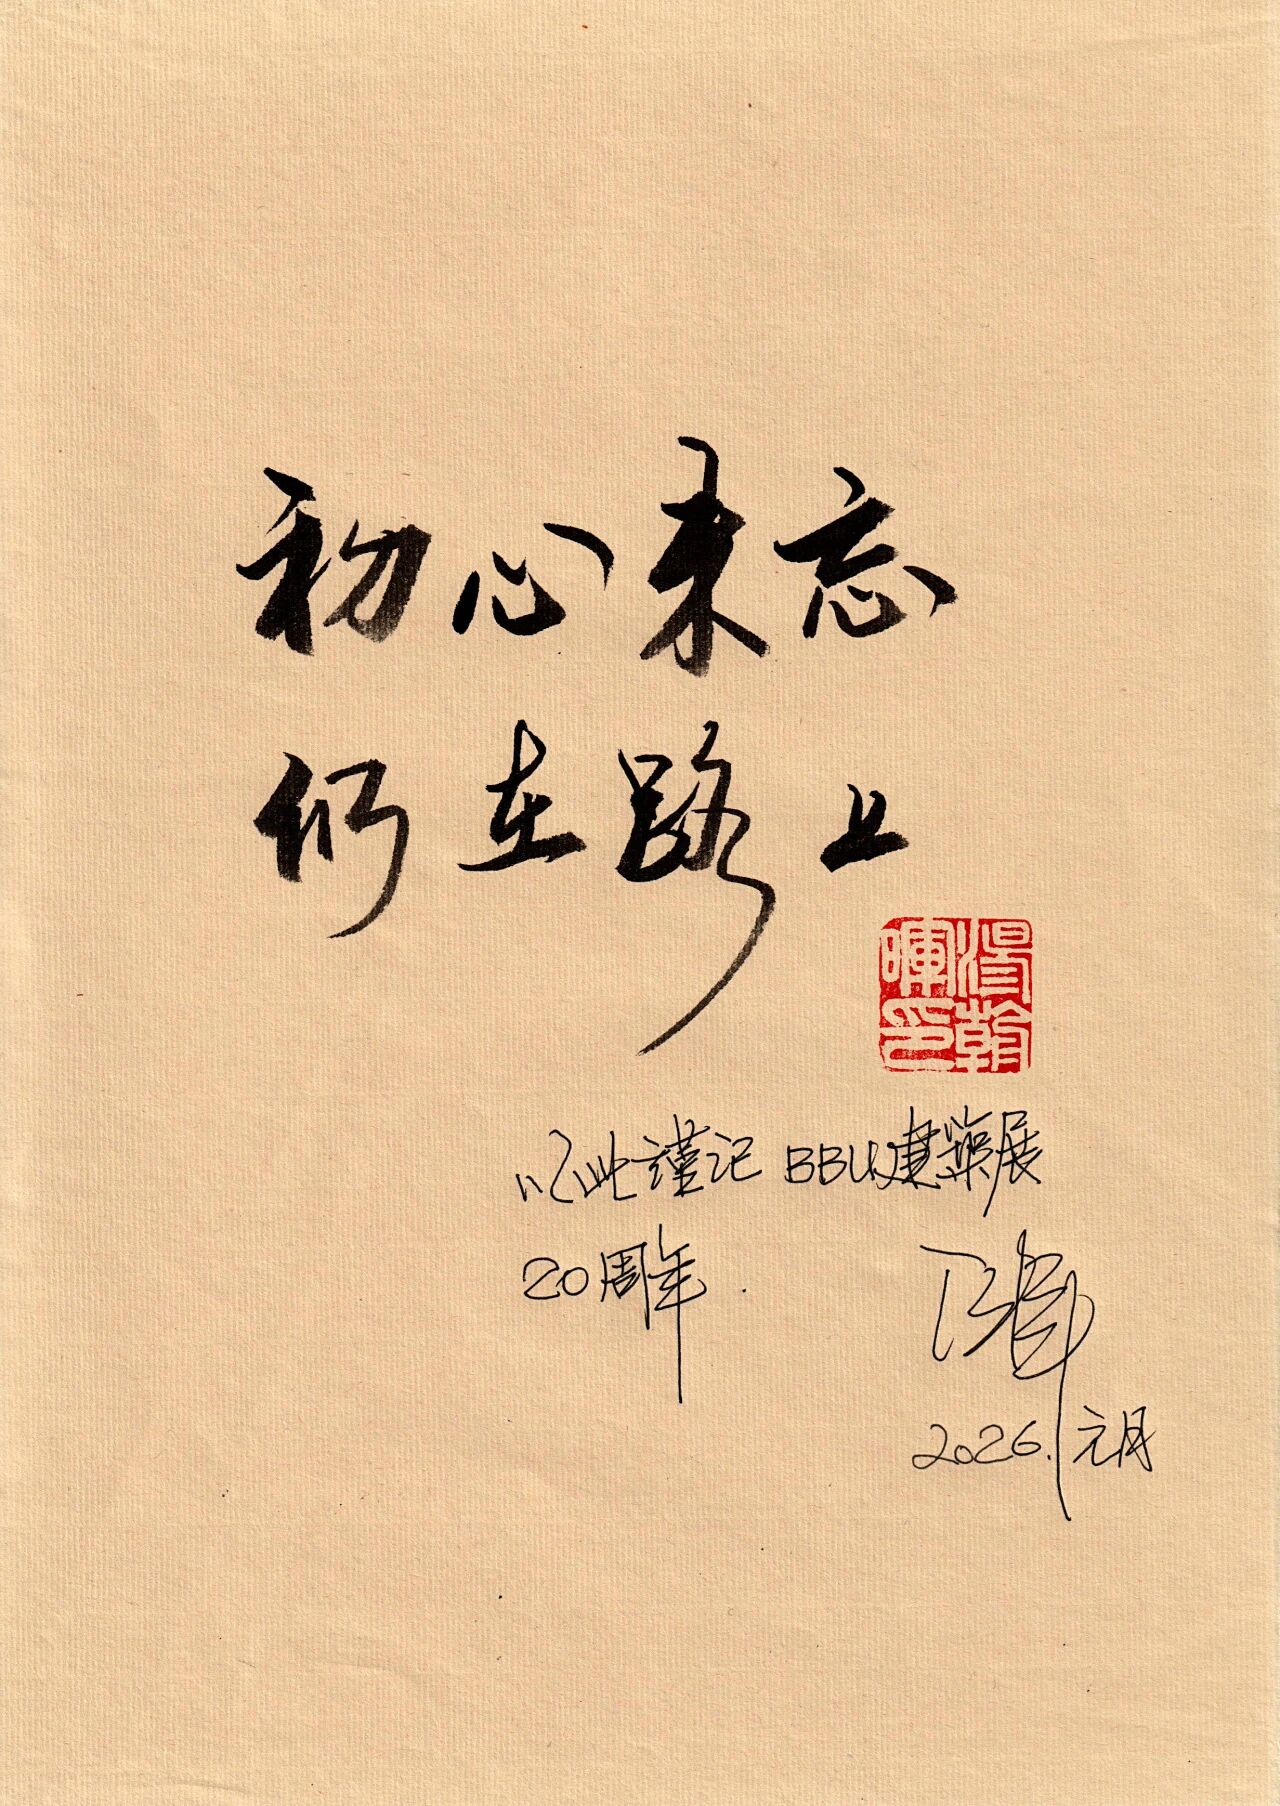 初心未忘
仍在路上
湯翰暉印
以此謹记 BBU建築展
20周年
2026.元月